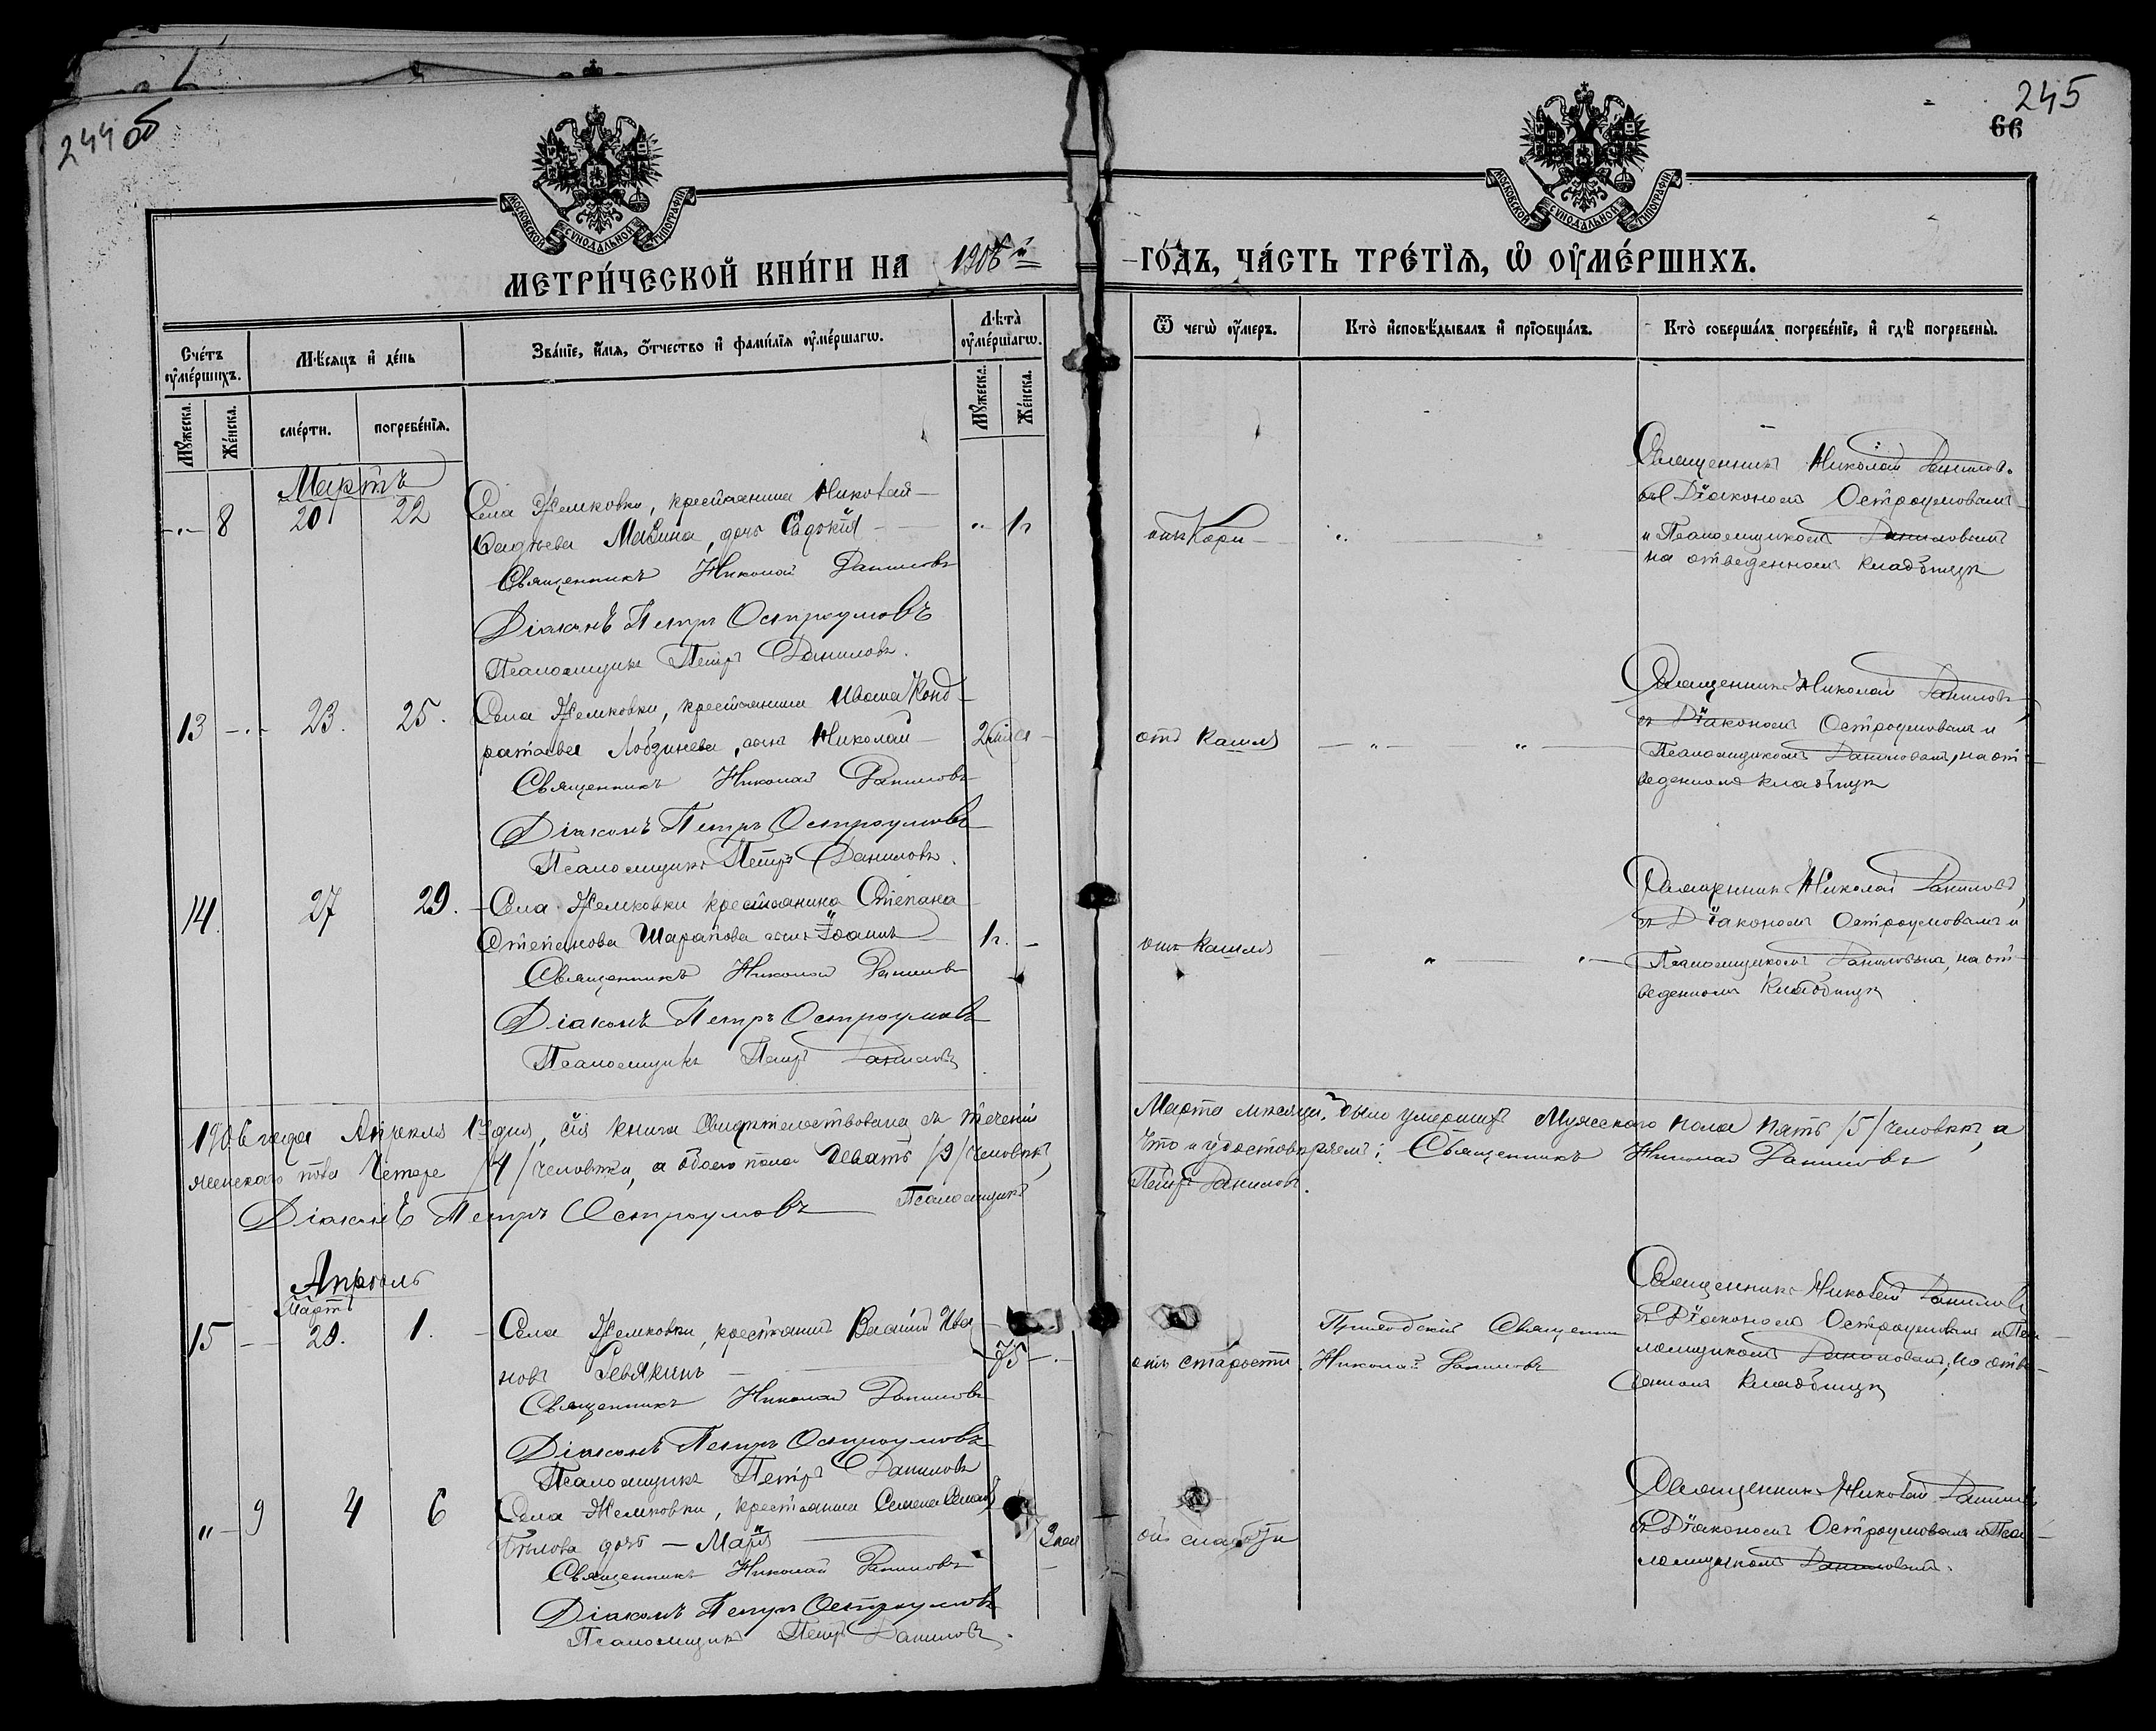 244 об
245
66
МОСКОВСКОЙ СѴНОДАЛЬНОЙ ТИПОГРАФІИ
МОСКОВСКОЙ СѴНОДАЛЬНОЙ ТИПОГРАФІИ
МЕТРИ́ЧЕСКОЙ КНИ́ГИ НА 1906 й
ГО́ДЪ, ЧА́СТЬ ТРЕ́ТІѦ, Ѡ҆ ОУ҆МЕ́РШИХЪ.
Сче́тъ оу҆ме́ршихъ.
Мѣ́сяцъ и҆ де́нь
Зва́нїе, и҆́мѧ, ѻ҆́тчество и҆ фами́лїѧ оу҆ме́ршагѡ.
Лѣта̀ оу҆ме́ршагѡ.
Ѿ чегѡ̀ оу҆́меръ.
Кто̀ и҆сповѣ́дывалъ и҆ прїѡбща́лъ.
Кто̀ соверша́лъ погребе́нїе, и҆ гдѣ̀ погребены̀.
Мꙋ́жеска.
Же́нска.
сме́рти.
погребе́нїѧ.
Мꙋ́жеска.
Же́нска.
Мартъ
8 20 22 Села Жемковки, крестьянина Николай
Мавина, дочь Евдокія 1 г
Священникъ Николай Даниловъ
Діаконъ Петръ Остроумовъ
Псаломщикъ Петръ Даниловъ.
отъ Кори
Священникъ Николай Данилов.
съ Діакономъ Остроумовымъ
и Псаломщикомъ Даниловымъ
на отведенномъ кладбищѣ
13 23. 25. Села Жемковки, крестьянина Ивана Конд-
ратьева Лобзинева, сынъ Николай
Священникъ Николай Даниловъ
Діаконъ Петръ Остроумовъ
Псаломщикъ Петръ Даниловъ.
отъ Кашля
Священникъ Николай Даниловъ
съ Діакономъ Остроумовымъ и
Псаломщикомъ Даниловымъ, на от-
веденномъ кладбищѣ
14 27 29. Села Жемковки крестьянина Степана
Степанова Шарапова сынъ Іоаннъ 1 г.
Священникъ Николай Даниловъ
Діаконъ Петръ Остроумовъ
Псаломщикъ Петръ Даниловъ
отъ Кашля
Священникъ Николай Даниловъ,
съ Діакономъ Остроумовымъ и
Псаломщикомъ Даниловымъ, на от-
веденномъ Кладбищѣ
1906 года Апреля 1 дня, сія книга Свидѣтельствована, въ теченіи Марта мѣсяца, было умершихъ Мужескаго пола пять /5/ человѣкъ, а
женскаго пола Четыре /4/ человѣка, а обоего пола Девять /9/ человѣкъ, Что и удостовѣряемъ: Священникъ Николай Даниловъ
Діаконъ Петръ Остроумовъ Псаломщикъ Петръ Даниловъ.
Апрѣль
Мартъ
15 29. 1. Села Жемковки, крестьянинъ Василій Ива-
новъ Ревякинъ 75
Священникъ Николай Даниловъ
Діаконъ Петръ Остроумовъ
Псаломщикъ Петръ Даниловъ
отъ старости
Приходскій Священникъ
Николай Даниловъ
Священникъ Николай Даниловъ
съ Діакономъ Остроумовымъ и Пса-
ломщикомъ Даниловымъ, на отве-
денномъ Кладбищѣ
9 4 6 Села Жемковки, крестьянина Семена
Бѣлова дочь — Марія
Священникъ Николай Даниловъ
Діаконъ Петръ Остроумовъ
Псаломщикъ Петръ Даниловъ.
отъ слабости
Священникъ Николай Даниловъ
съ Діакономъ Остроумовымъ и Пса-
ломщикомъ Даниловымъ.